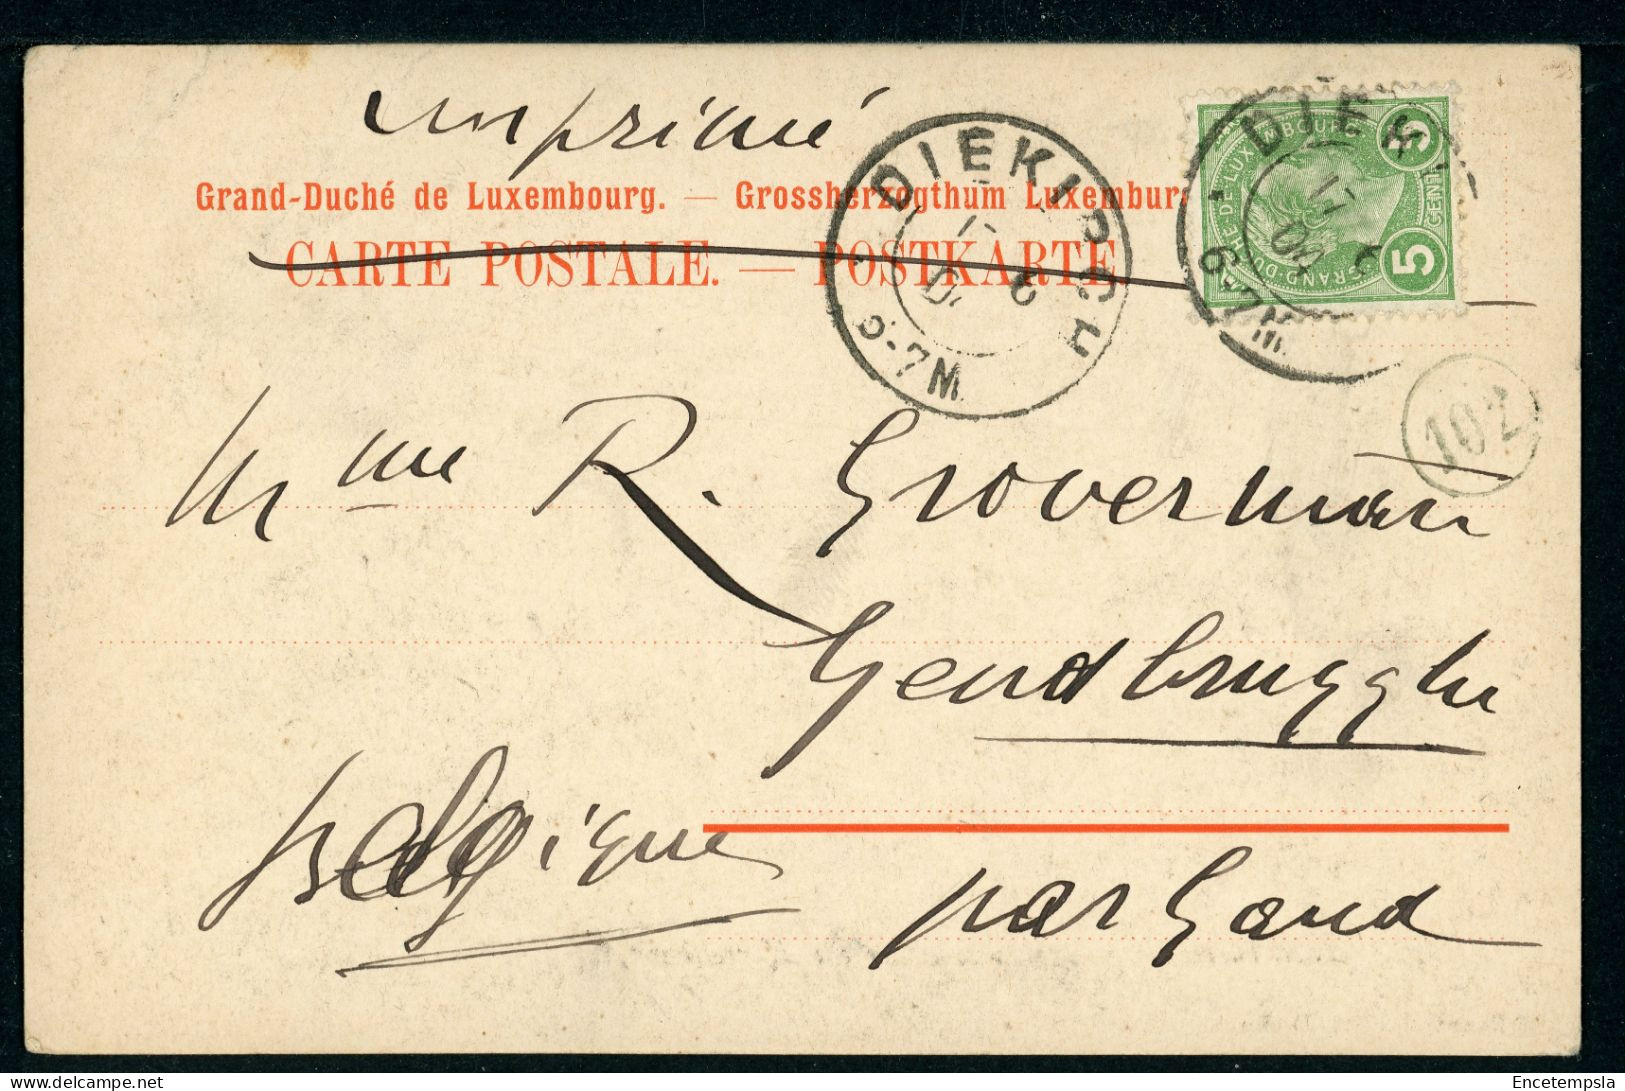 Imprimé
Grand-Duché de Luxembourg. — Grossherzogthum Luxemburg
CARTE POSTALE. — POSTKARTE.
DIEKIRCH
6-7M
DIEKI
6-7M
GRAND-DUCHÉ DE LUXEMBOURG
5 CENT 5
102
Mme R. Groverman
Gendbrugghe
Belgique
par Gand
delcampe.net
Encetempsla